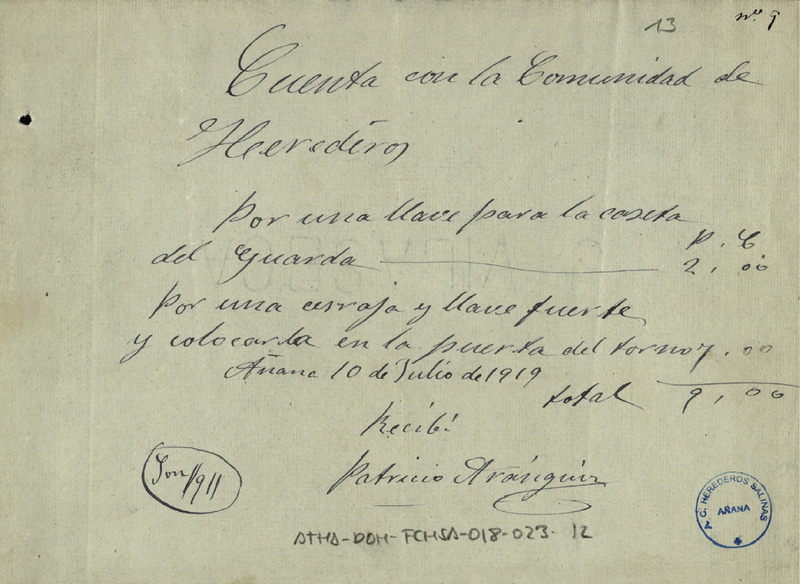 13
nº 9
Cuenta con la Comunidad de
Herederos
Por una llave para la caseta
P. C
del Guarda 2,00
Por una cerraja y llave fuerte
y colocarla en la puerta del torno 7.00
Añana 10 de Julio de 1919
total 9,00
Recibí
Patricio Aránguiz
Son//9//
C. HEREDEROS SALINAS
AÑANA
ATHA-DAH-FCHSA-018-023-12